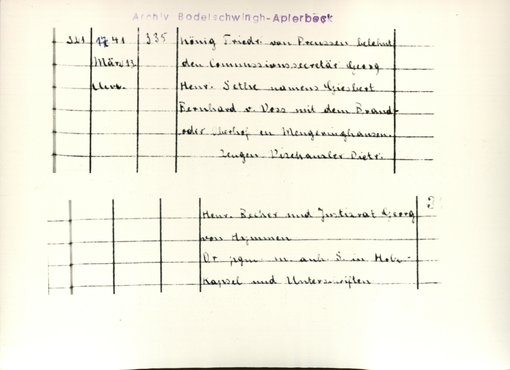 Archiv Bodelschwingh-Aplerbeck
321 1741 335 König Friedr. von Preussen belehnt
März 13 den Commissionssecretär Georg
Cleve. Henr. Sethe namens Giesbert
Bernhard v. Voss mit dem Brand-
oder Oberhof en Mengeringhausen.
Zeugen Vizekanzler Dietr.
Henr. Becher und Justizrat Georg
von Hymmen
Or. pgm. m. anh. S. in Holz-
kapsel und Unterschriften